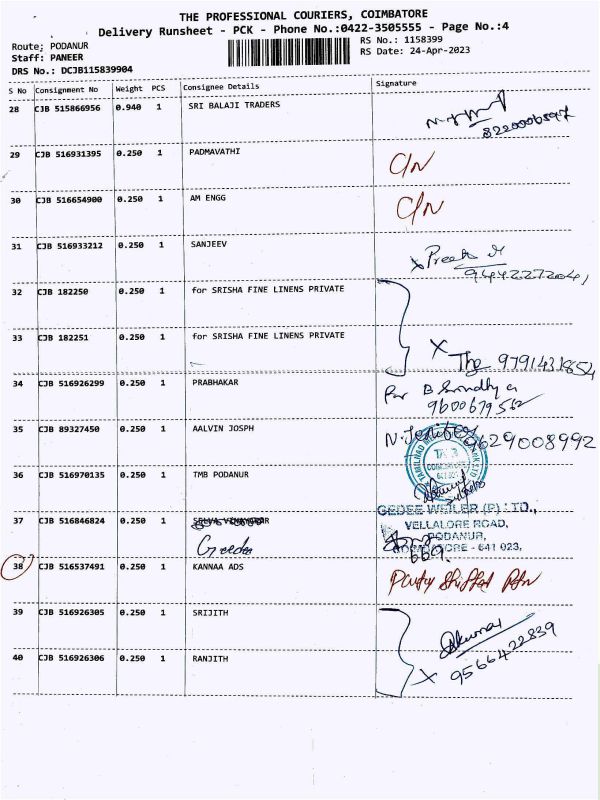 THE PROFESSIONAL COURIERS, COIMBATORE
Delivery Runsheet - PCK - Phone No.:0422-3505555 - Page No.:4
Route; PODANUR
RS No.: 1158399
Staff: PANEER
RS Date: 24-Apr-2023
DRS No.: DCJB115839904
S No Consignment No Weight PCS Consignee Details Signature
28 CJB 515866956 0.940 1 SRI BALAJI TRADERS
29 CJB 516931395 0.250 1 PADMAVATHI C/N
30 CJB 516654900 0.250 1 AM ENGG C/N
31 CJB 516933212 0.250 1 SANJEEV
9442272041
32 CJB 182250 0.250 1 for SRISHA FINE LINENS PRIVATE
33 CJB 182251 0.250 1 for SRISHA FINE LINENS PRIVATE
X 9791431854
34 CJB 516926299 0.250 1 PRABHAKAR
9600679562
35 CJB 89327450 0.250 1 AALVIN JOSPH 9629008992
36 CJB 516970135 0.250 1 TMB PODANUR
37 CJB 516846824 0.250 1
GEDEE WEILER (P) LTD.,
VELLALORE ROAD,
PODANUR,
COIMBATORE - 641 023.
38 CJB 516537491 0.250 1 KANNAA ADS Party Shifted Rtn
39 CJB 516926305 0.250 1 SRIJITH
40 CJB 516926306 0.250 1 RANJITH
X 9566422839